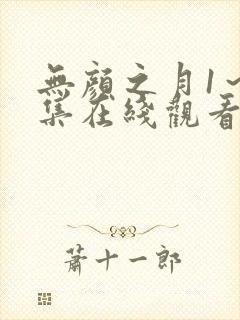 無顏之月1~
集在綫觀看
蕭十一郎